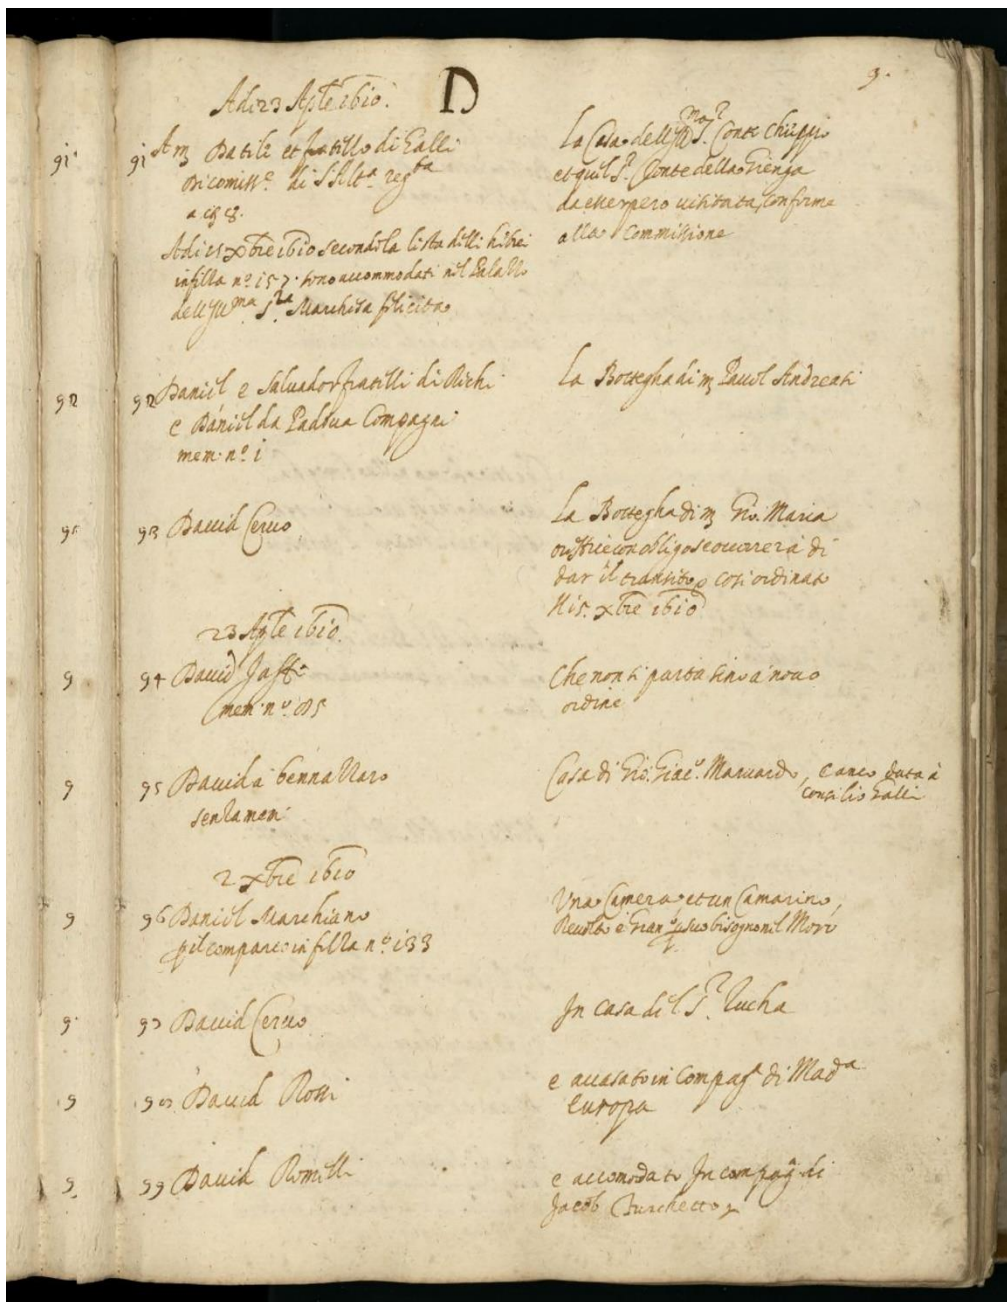 D
9.
Adi 23 Aple 1610.
91 91 A m Datili et fratillo di Galli
di S. Alta. regta
a
Adi 15 xbre 1610 secondo la lista delli hibrei
in filza no. 157. sono accommodati nel Palazzo
dell Illma Sra. Marchesa filicita
La Casa dell Illmo Sr. Conte Chiuppio
et qui l Sr. Conte della Genga
da esser pero visitata, conforme
alla Commissione
92 92 Daniel e Salvador fratilli di Richi
e Daniel da Padova Compagni
mem. no. 1
La Bottegha di m Pauol Andreati
93 Dauid Ceruo
La Bottegha di m Gio. Maria
con obligo se occorrerà di
dar il transito, e cosi ordinato
15. xbre 1610
23 Aple 1610.
9 94 Dauid Jaffe
mem. no. 85
Che non si parta sino a novo
ordine
9 95 Dauid a benna
senza mem:
Casa di Gio. Giac. Maruardo, e anco data à
consilio Galli
2 xbre 1610
9 96 Daniel Marchiano
in filza no. 133
Una Camera et un Camarino,
p suo bisogno nel
9 97 Dauid Ceruo
In casa del Sr. Zucha
9 98 Dauid Rossi
e accasato in Compaga di Mada
Europa
9 99 Dauid Romilli
e accomodato In compag di
Jacob Burchetto